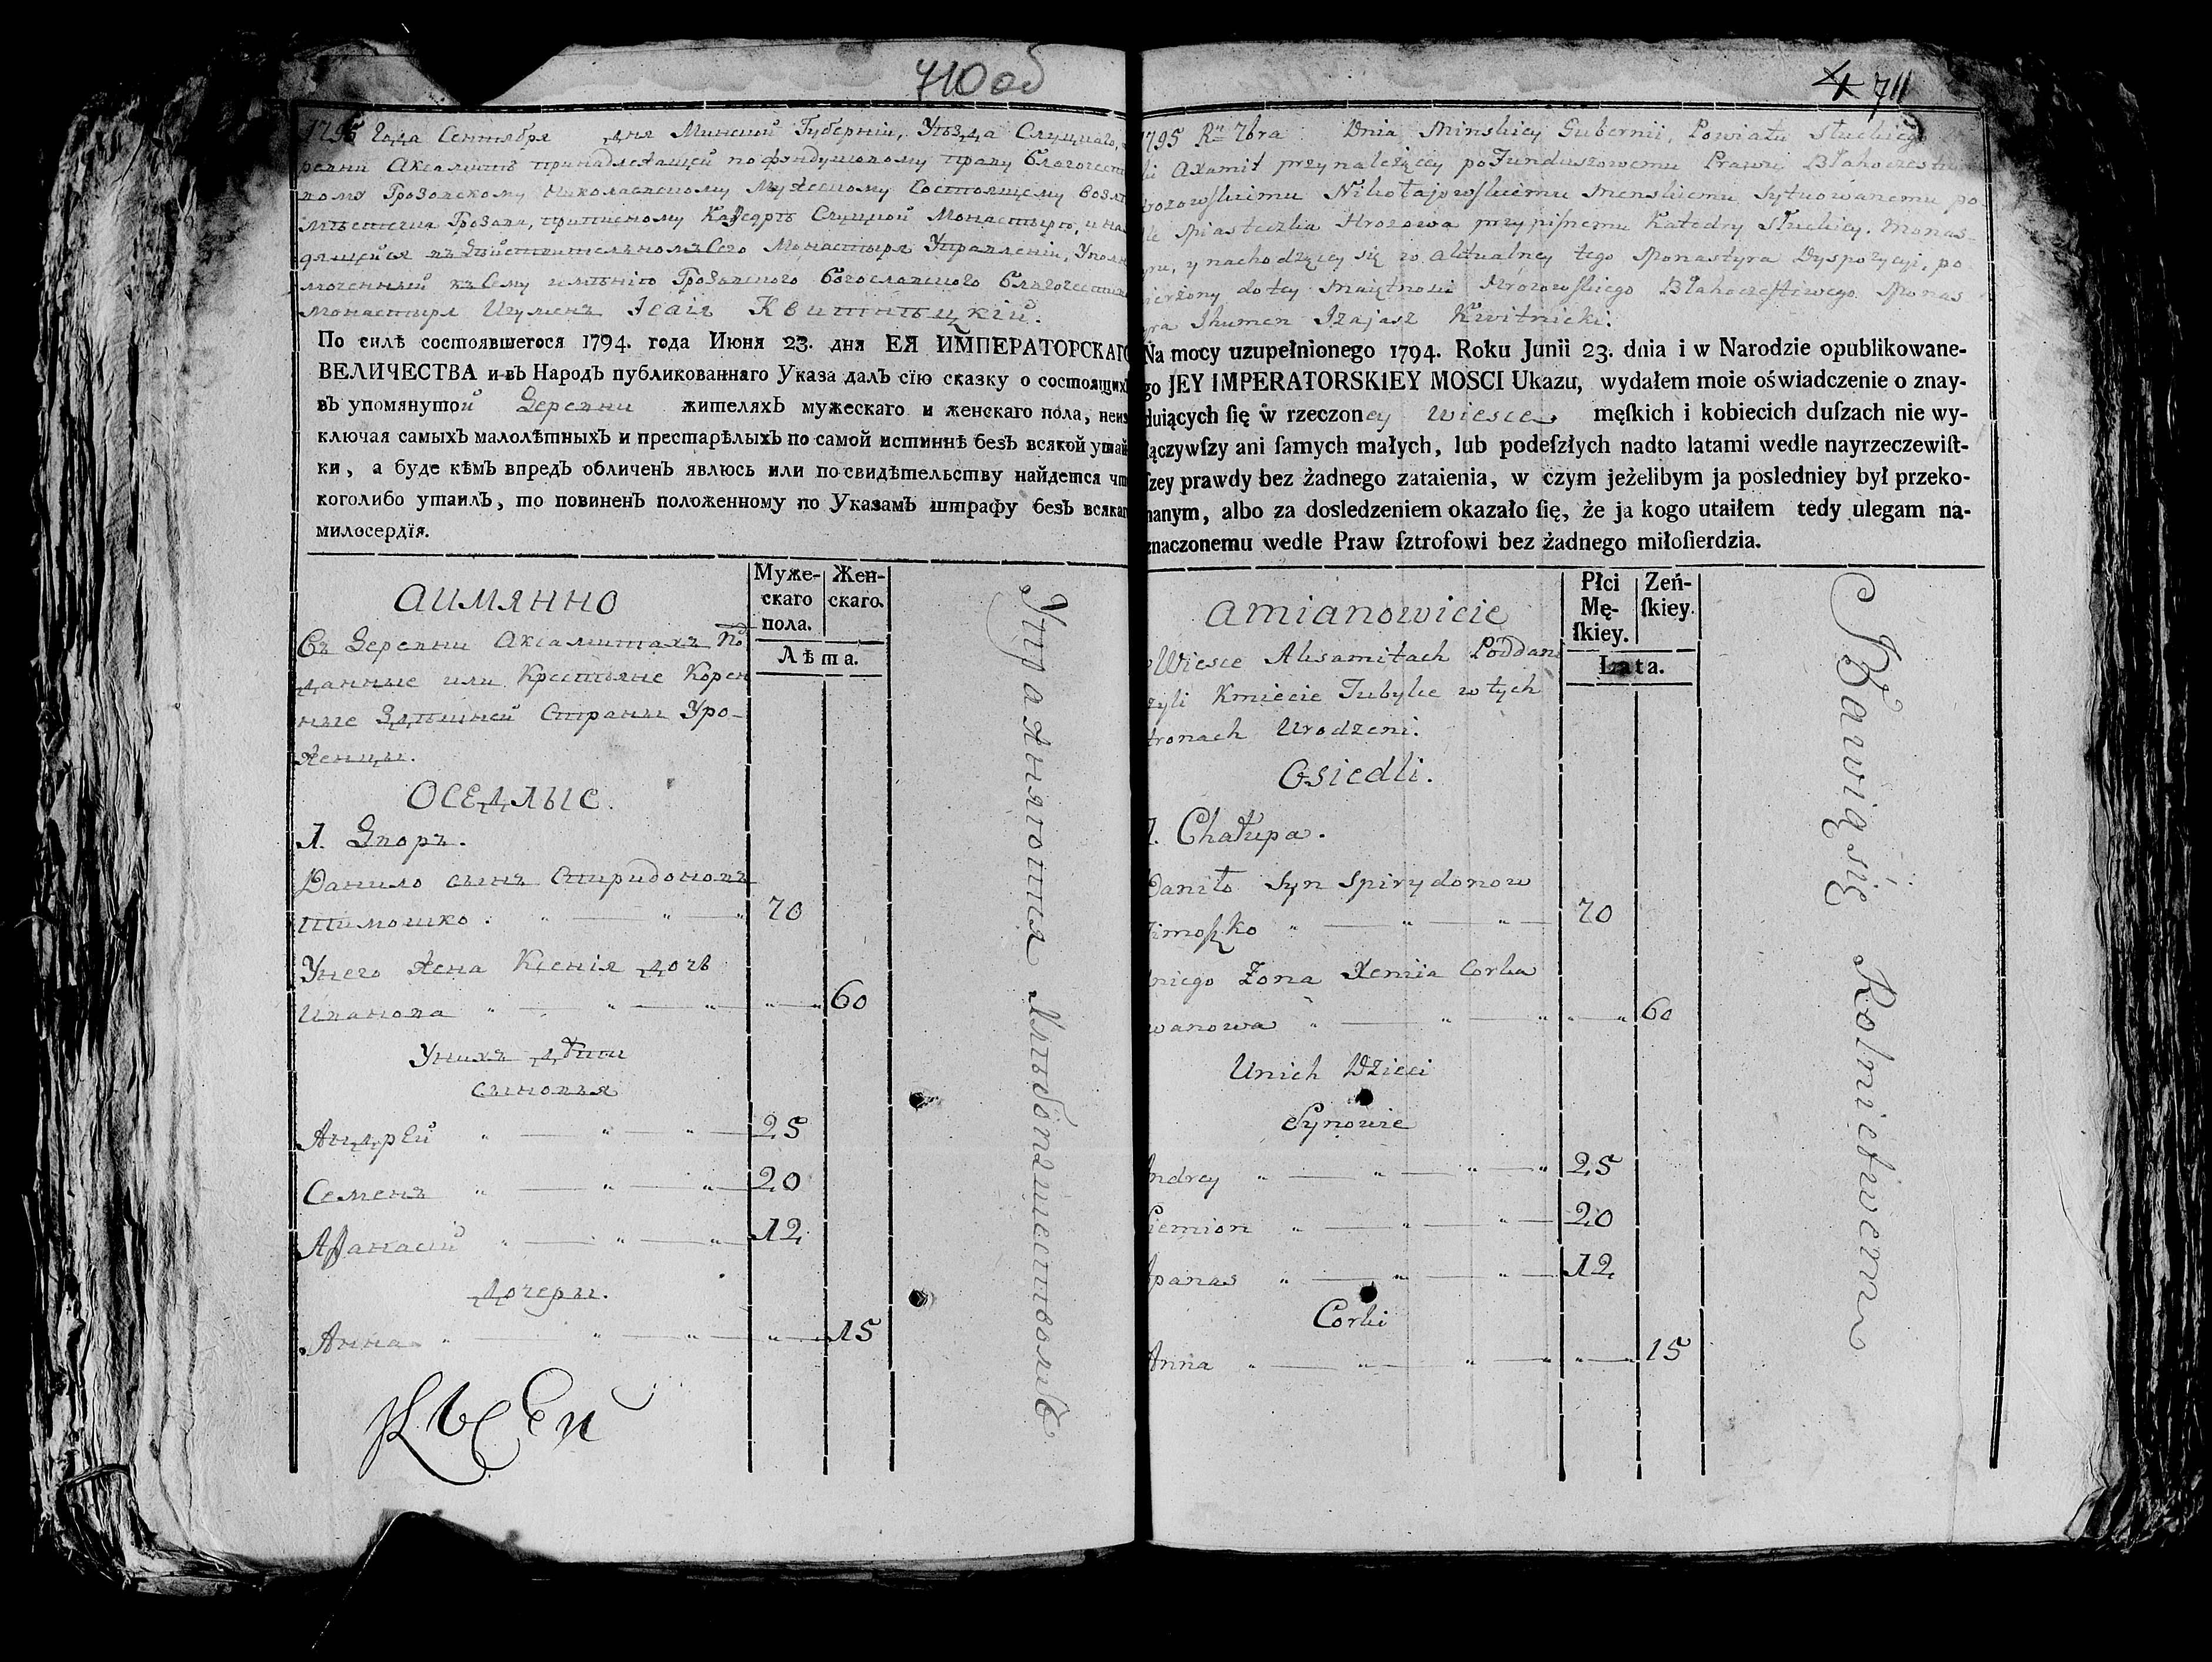 710 об
1795 Года Сентября дня Минской Губерніи, Уѣзда Слуцкаго,
ревни Аксамитъ принадлежащей по фундушовому праву благочест
вому Грозовскому Николаевскому Мужескому Состоящему возлѣ
мѣстечка Грозова, приписному Каѳедрѣ Слуцкой Монастырю, и нахо
дящейся въ дѣйствительномъ Сего Монастыря Управленіи, Уполно
моченный къ Сему имѣнію Грозовского Богословского Благочестив
монастыря Игуменъ Ісаія Квитницкій.
По силѣ состоявшегося 1794. года Июня 23. дня ЕЯ ИМПЕРАТОРСКАГО
ВЕЛИЧЕСТВА и въ Народъ публикованнаго Указа далъ сїю сказку о состоящихъ
въ упомянутой Деревни жителяхъ мужескаго и женскаго пола, неиз
ключая самыхъ малолѣтныхъ и престарѣлыхъ по самой истиннѣ безъ всякой утай
ки, а буде кѣмъ впредъ обличенъ явлюсь или по свидѣтельству найдется что
коголибо утаилъ, то повиненъ положенному по Указамъ штрафу безъ всякаго
милосердїя.
АИМЯННО
Муже-скаго пола.
Жен-скаго.
Лѣта.
Въ Деревни Аксамитахъ Под
данные или Крестьяне Корен
ные Здѣшней Страны Уро-
женцы.
ОСЕДЛЫЕ.
1. Дворъ.
Данило сынъ Спиридоновъ
Тимошко. 70
Унего жена Ксенія дочь
Иванова 60
Унихъ дѣти
сыновья
Андрей 25
Семенъ 20
Афанасій 12
дочеры.
Анна 15
Упражняются Хлѣбопашествомъ
4 711
1795 Ru 7bra Dnia Minskiey Gubernii, Powiatu Słuckiego
si Axamit przynależącey po Funduszowemu Prawu Błahoczestiw
Hrozowskiemu Nikołajewskiemu Menskiemu Sytuowanemu po
dle Miasteczka Hrozowa przypisnemu Katedry Słuckiey Monas-
yru, y nachodzącey się w aktualney tego Monastyra Dyspozycyi, po
wierzony do tey Maiętnosci Hrozowskiego Błahoczestiwego Monas
tyra Ihumen Izajasz Kwitnicki.
Na mocy uzupełnionego 1794. Roku Junii 23. dnia i w Narodzie opublikowane-
go JEY IMPERATORSKIEY MOSCI Ukazu, wydałem moie oświadczenie o znay-
duiących ſię w rzeczoney wiesce męſkich i kobiecich duſzach nie wy-
łączywſzy ani ſamych małych, lub podeſzłych nadto latami wedle nayrzeczewiſt-
ſzey prawdy bez żadnego zataienia, w czym jeżelibym ja posledniey był przeko-
nanym, albo za dosledzeniem okazało ſię, że ja kogo utaiłem tedy ulegam na-
znaczonemu wedle Praw ſztrofowi bez żadnego miłoſierdzia.
amianowicie
Płci Mę-ſkiey.
Zeń-ſkiey.
Lata.
Wiesce Aksamitach Poddani
czyli Kmiecie Tubylce w tych
stronach Urodzeni.
Osiedli.
1. Chałupa.
Daniło Syn Spirydonow
Timoszko 70
niego Żona Xenia Corka
wanowa 60
Unich Dzieci
Synowie
Andrey 25
Siemion 20
Apanas 12
Corki
Anna 15
Bawią się Rolnictwem